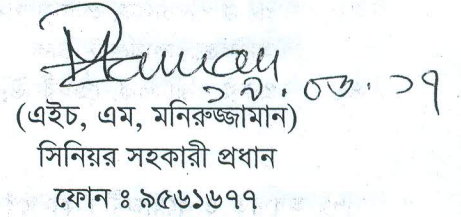 ১৯.০৩.১৭
(এইচ, এম, মনিরুজ্জামান)
সিনিয়র সহকারী প্রধান
ফোন ঃ ৯৫৬১৬৭৭